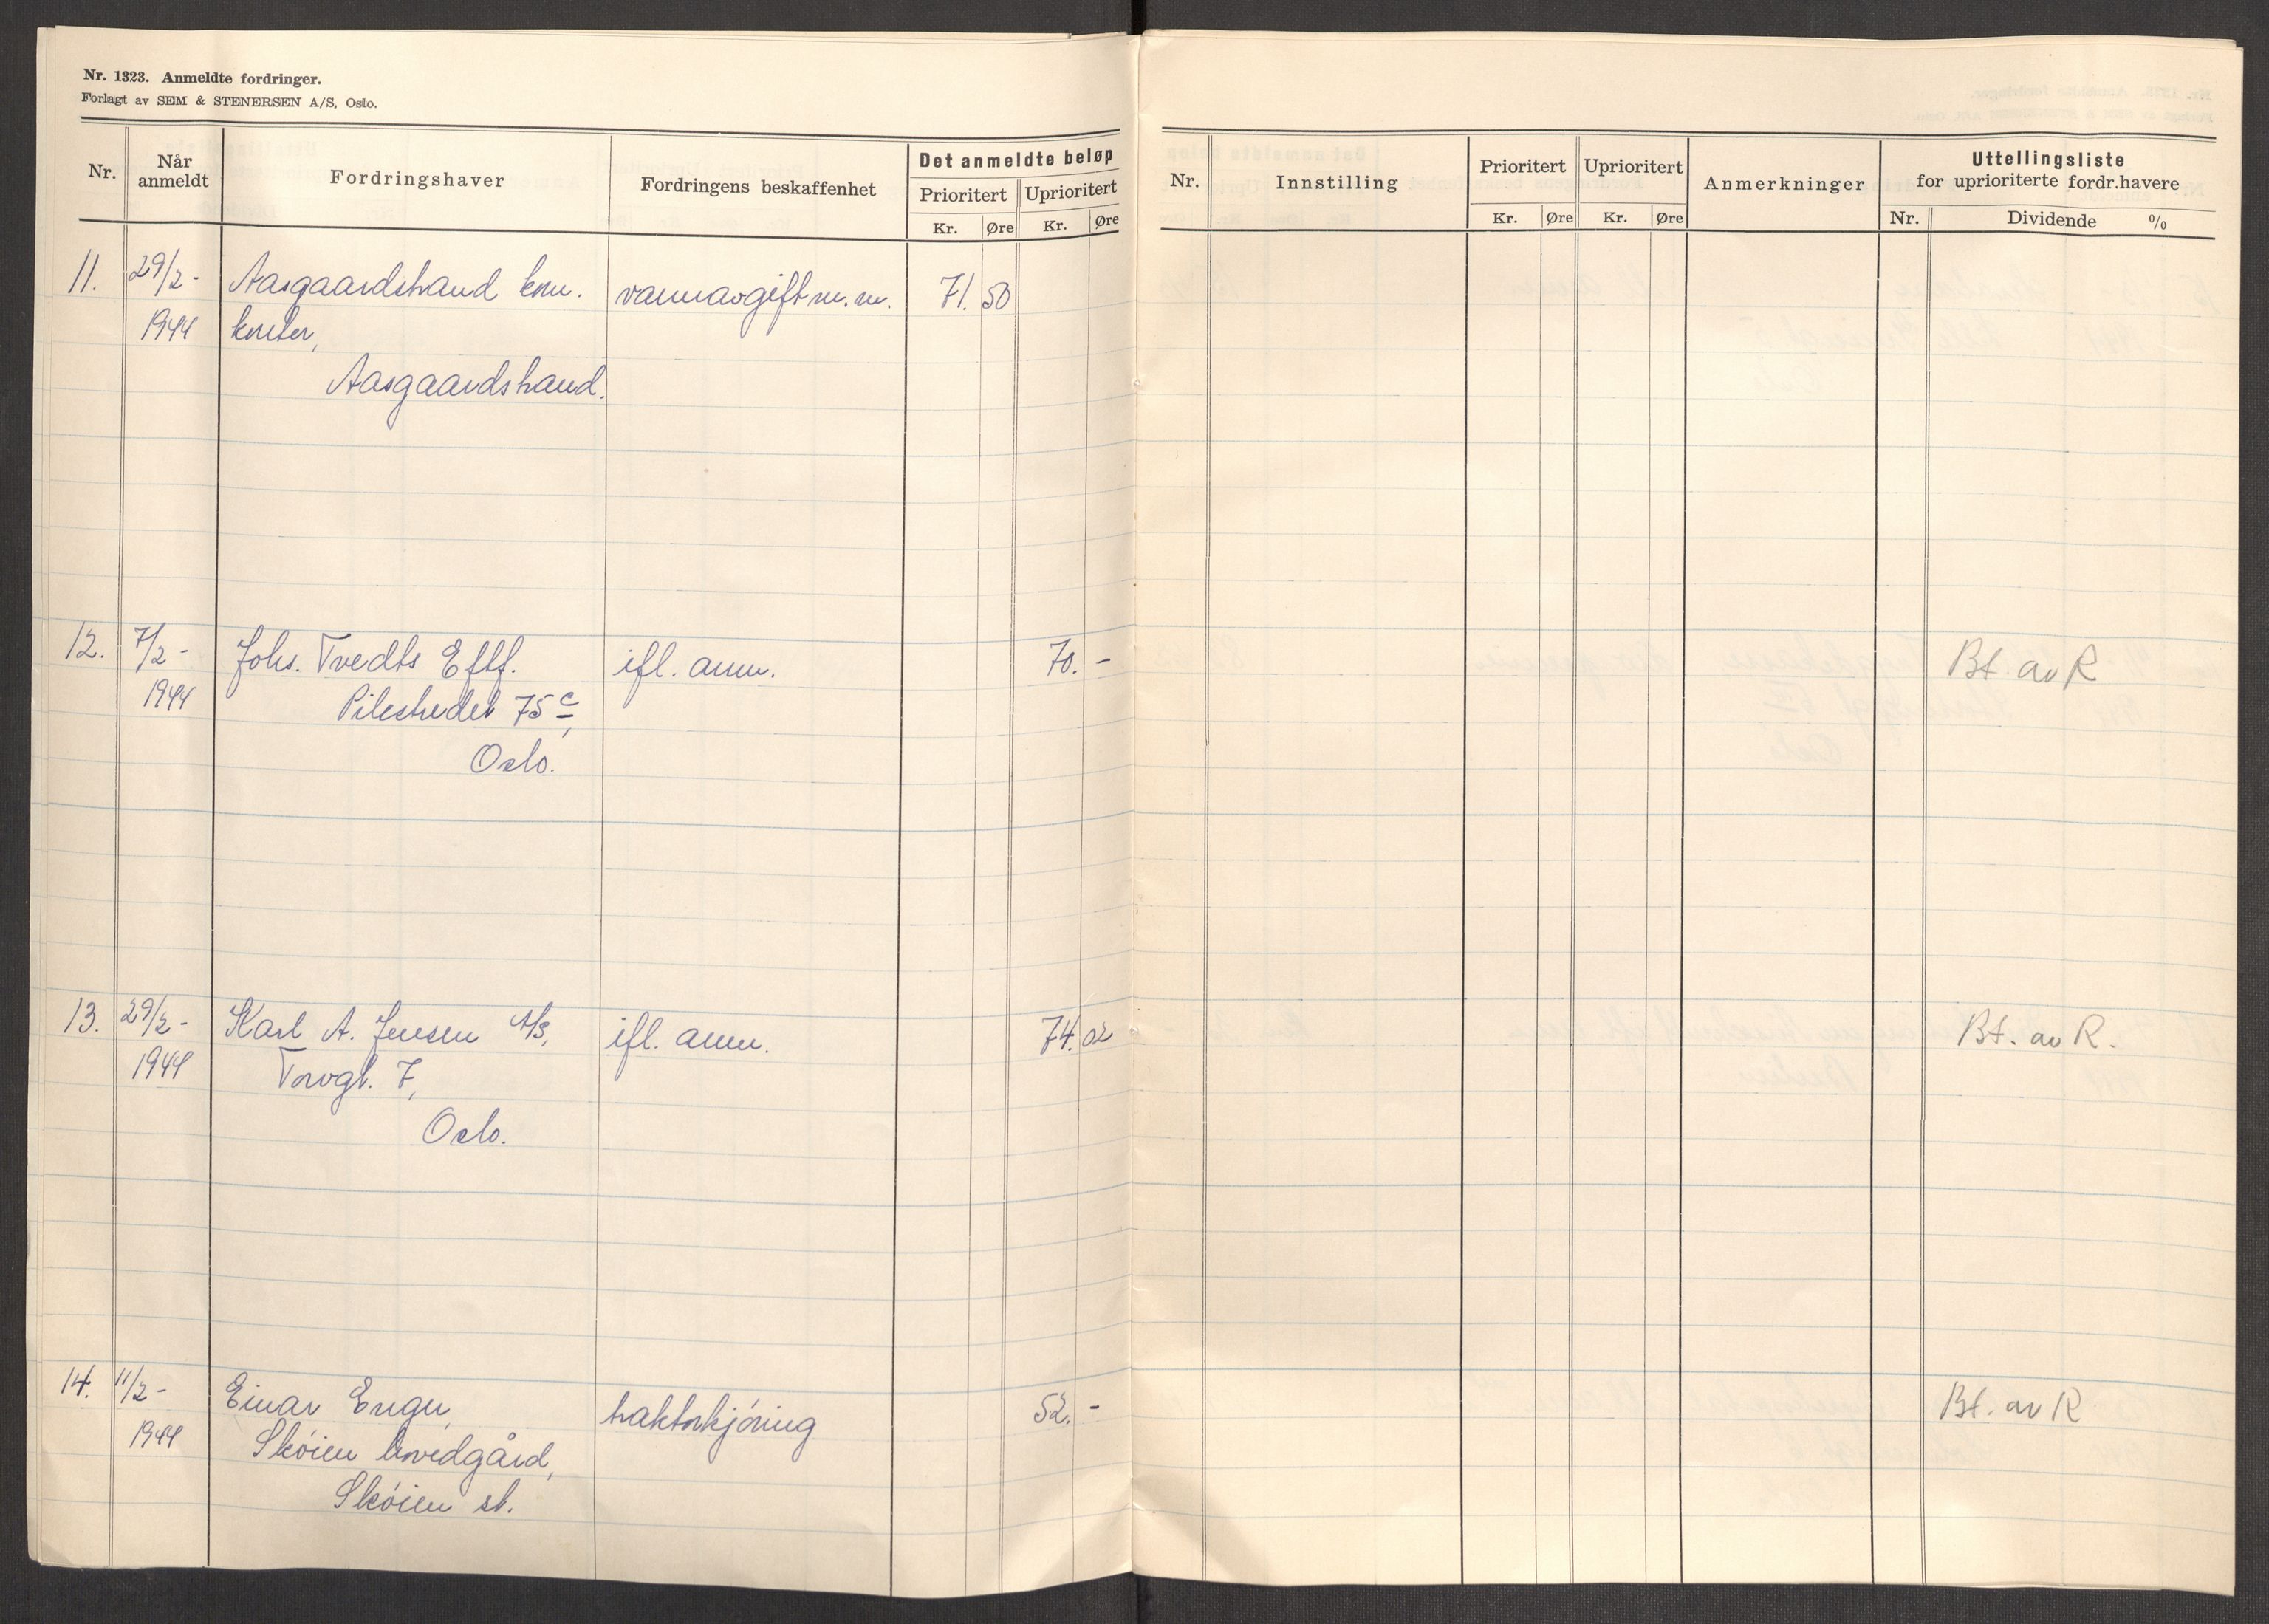 Nr. 1323. Anmeldte fordringer.
Forlagt av SEM & STENERSEN A/S, Oslo.
Nr. Når anmeldt Fordringshaver Fordringens beskaffenhet Det anmeldte beløp
Prioritert Uprioritert
Kr. Øre Kr. Øre
11. 29/2- Aasgaardstrand kom. vannavgift m.m. 71. 50
1944 kontor,
Aasgaardstrand.
12. 7/2- Johs. Tvedts Eftf. ifl. anm. 70. -
1944 Pilestredet 75c,
Oslo.
13. 29/2- Karl A. Jensen A/S, ifl. anm. 74. 02
1944 Torvgt. 7,
Oslo.
14. 11/2- Einar Enger, traktorkjöring 52. -
1944 Sköien hovedgård,
Sköien st.
Nr. Innstilling Prioritert Uprioritert Anmerkninger Uttellingsliste
for uprioriterte fordr.havere
Kr. Øre Kr. Øre Nr. Dividende %
Bt. av R
Bt. av R.
Bt. av R